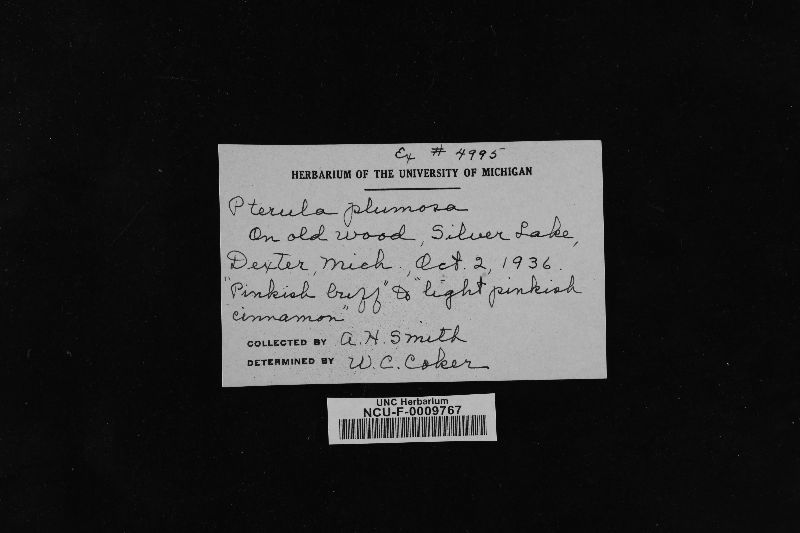 Ex # 4995
HERBARIUM OF THE UNIVERSITY OF MICHIGAN
Pterula plumosa
On old wood, Silver Lake,
Dexter, Mich., Oct. 2, 1936.
"Pinkish buff" to "light pinkish
cinnamon"
COLLECTED BY A. H. Smith
DETERMINED BY W. C. Coker
UNC Herbarium
NCU-F-0009767